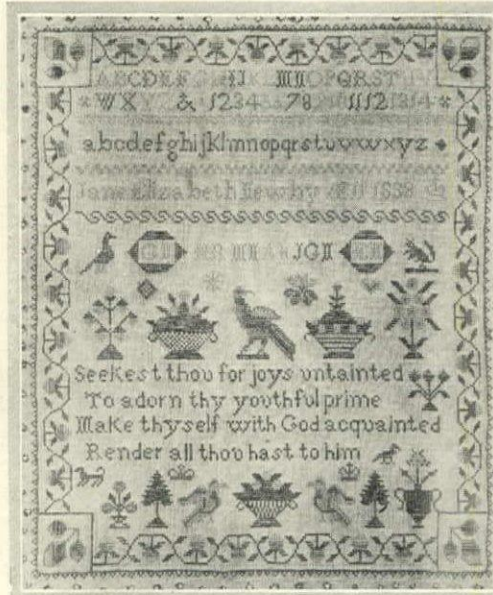 ABCDEFGHIJKLMNOPQRSTUV
WXYZ & 1234567891011121314
abcdefghijklmnopqrstuvwxyz
Jane Elizabeth 1838
JGH
Seekest thou for joys untainted
To adorn thy youthful prime
Make thyself with God acquainted
Render all thou hast to him